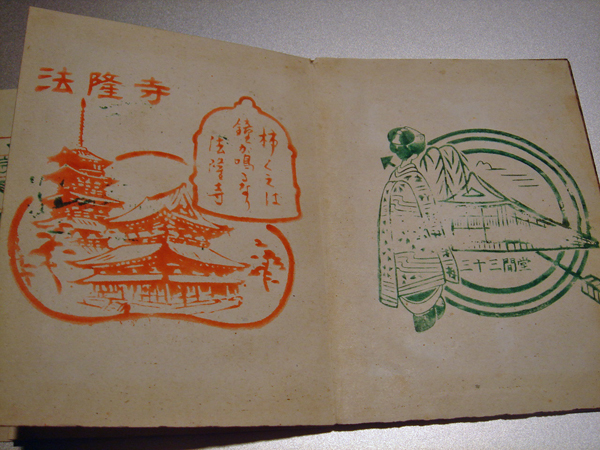 法隆寺
柿くえば
鐘が鳴るなり
法隆寺
三十三間堂